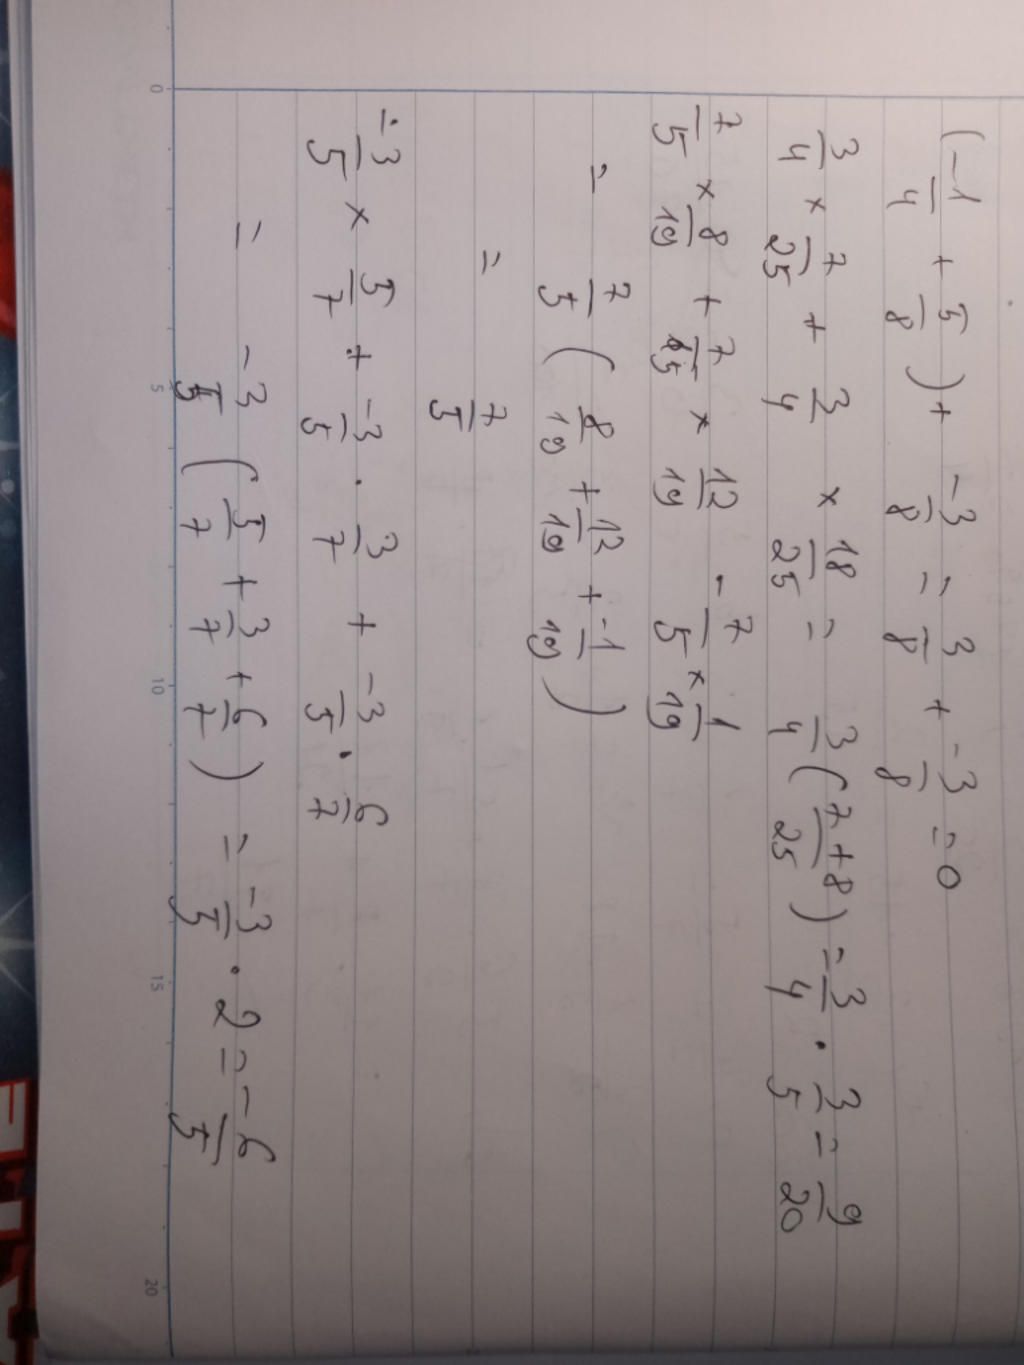 (-1/4 + 5/8) + -3/8 = 3/8 + -3/8 = 0
3/4 × 7/25 + 3/4 × 18/25 = 3/4 (7+8/25) = 3/4 . 3/5 = 9/20
7/5 × 8/19 + 7/5 × 12/19 - 7/5 × 1/19
= 7/5 (8/19 + 12/19 + -1/19)
= 7/5
-3/5 × 5/7 + -3/5 . 3/7 + -3/5 . 6/7
= -3/5 (5/7 + 3/7 + 6/7) = -3/5 . 2 = -6/5
0 5 10 15 20